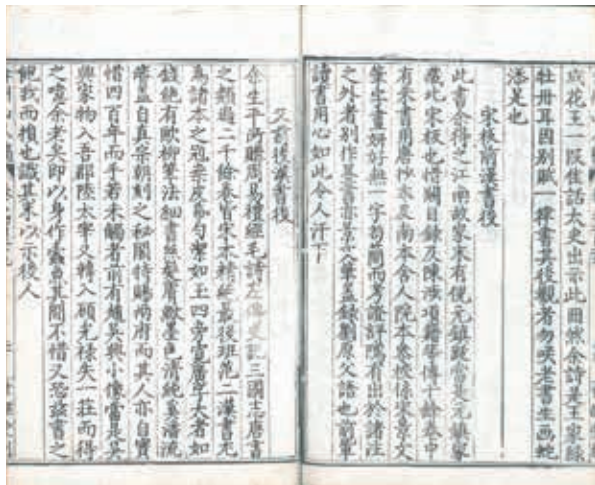 成花王一段佳話太史出示此圖然余詩是王家綠
牡丹耳因別賦一律書其後觀者勿咲老書生画蛇
添是也
宋板前漢書後
此書余得之江南故家末有倪元鎮跋當是元鎮家
藏此宋板也惜闕目錄及陳涉項籍等傳十餘卷中
有朱書用唐抄本及南本舍人院本叅校係宋景文
筆字畫妍好無一字苟簡而考證評隲有出於諸注
之外者別作墨書亦景文筆蓋錄劉原父語也前輩
讀書用心如此令人汗下
又前後漢書後
余生平所購周易禮經毛詩左傳史記三國志唐書
之類過二千餘卷皆宋本精絕最後班范二漢書尤
為諸本之冠桑皮勻潔如玉四旁寬廣字大者如
錢絕有歐柳筆法細書絲髮膚緻墨色清純奚潘流
瀋蓋自真宗朝刻之秘閣特賜兩府而其人亦自寶
惜四百年而手若未觸者前有趙吳興小像當是吳
興家物入吾郡陸太宰又轉入顧光祿失一莊而得
之噫余老矣即以身作蠹魚其間不惜又恐茲書之
飽我而損也識其末以示後人